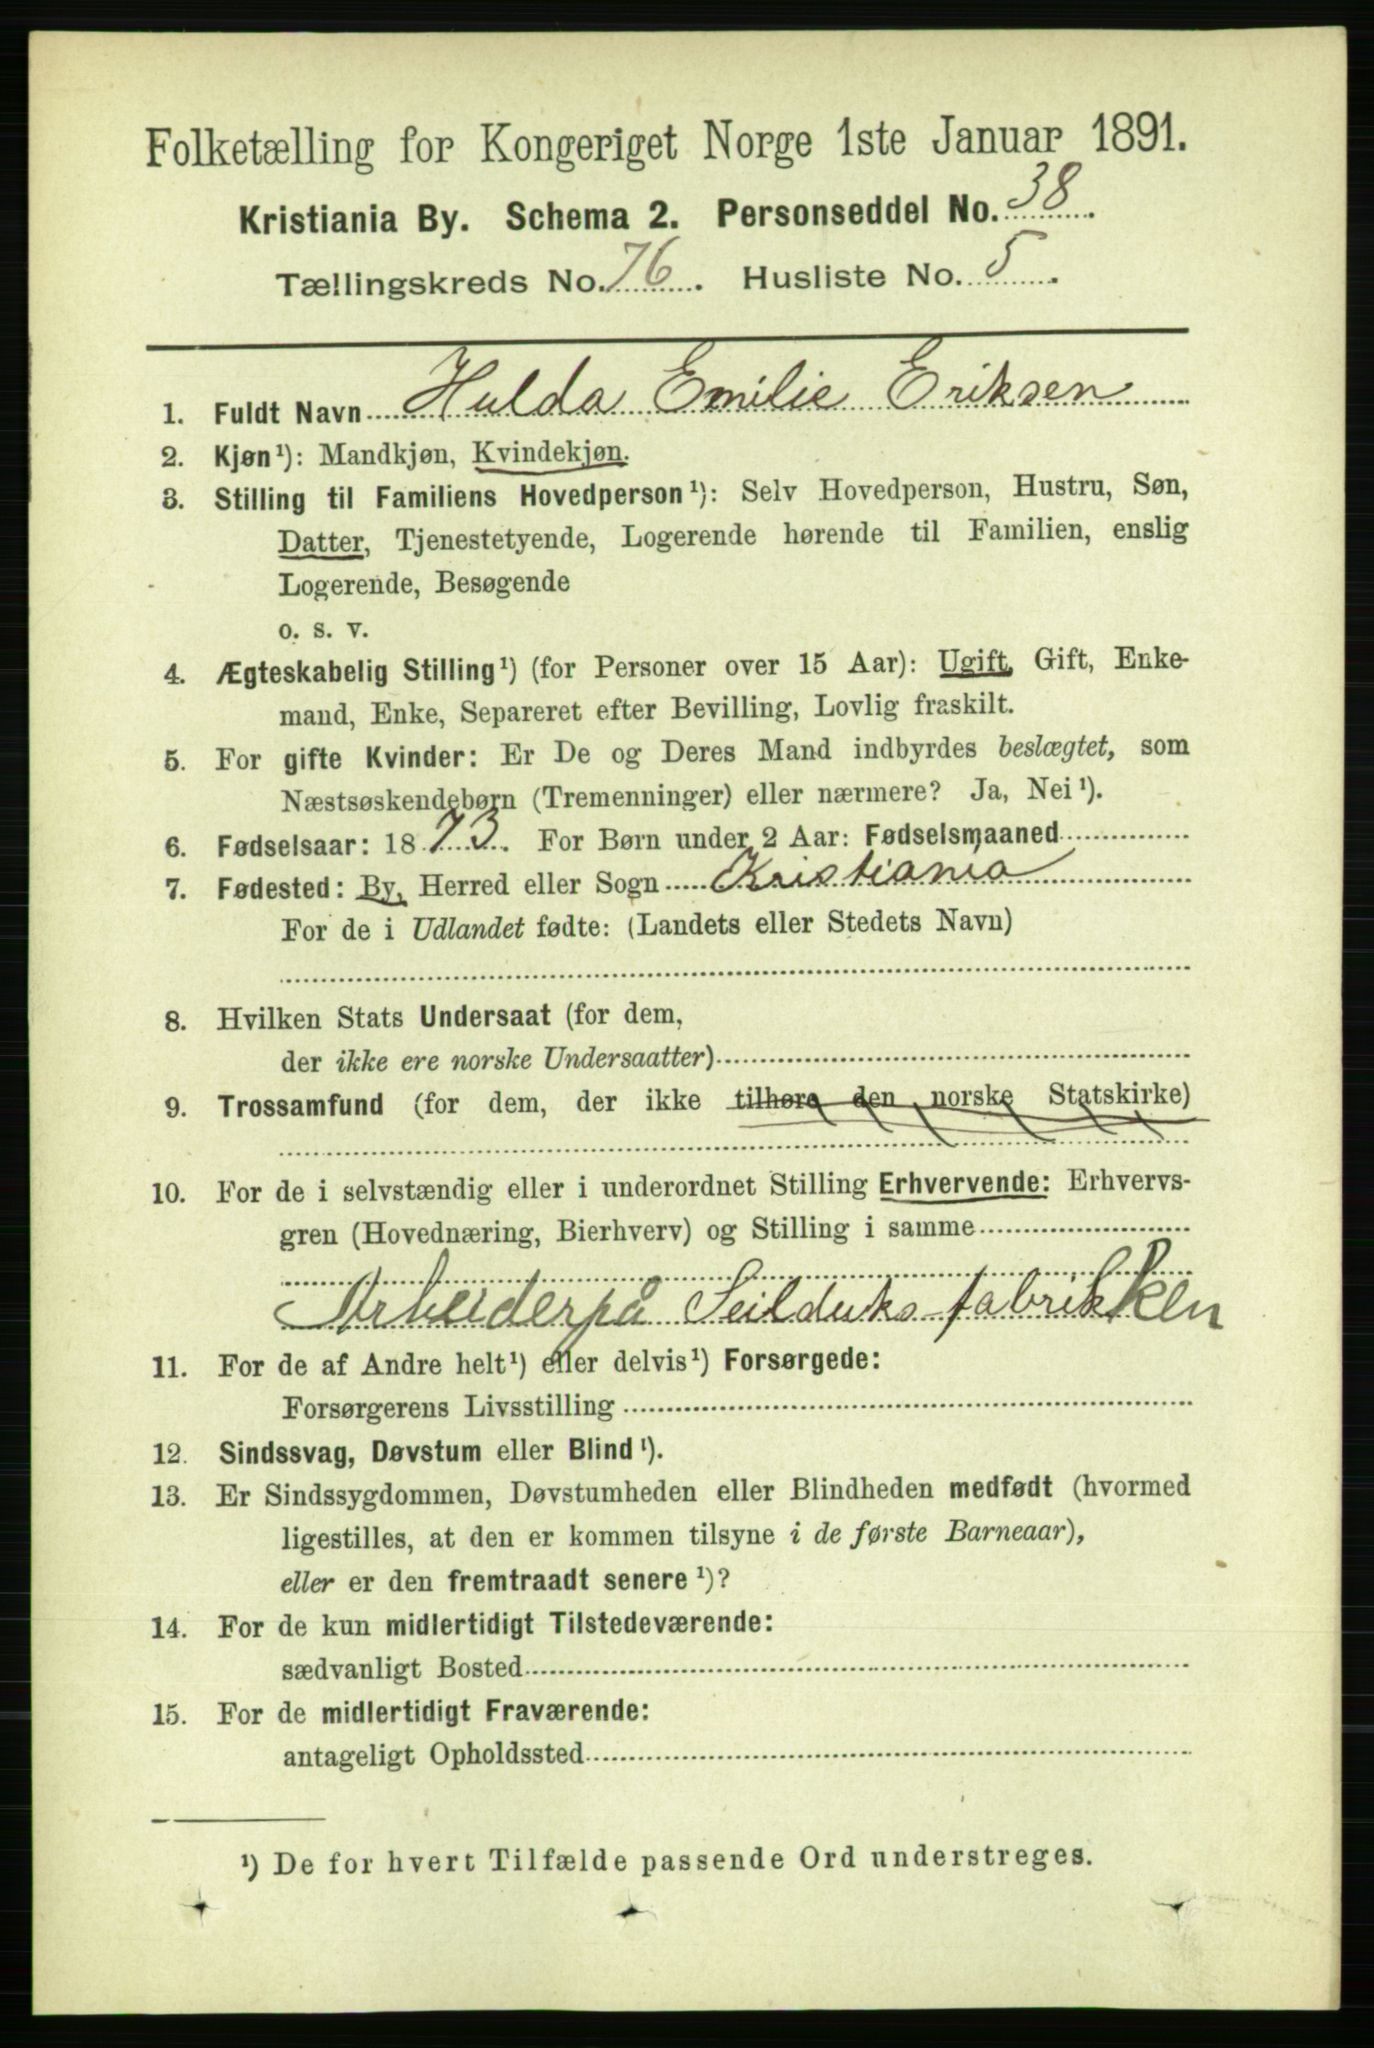 Folketælling for Kongeriget Norge 1ste Januar 1891.
Kristiania By. Schema 2. Personseddel No. 38
Tællingskreds No. 76. Husliste No. 5.
1. Fuldt Navn Hulda Emilie Eriksen
2. Kjøn¹): Mandkjøn, Kvindekjøn.
3. Stilling til Familiens Hovedperson¹): Selv Hovedperson, Hustru, Søn,
Datter, Tjenestetyende, Logerende hørende til Familien, enslig
Logerende, Besøgende
o. s. v.
4. Ægteskabelig Stilling¹) (for Personer over 15 Aar): Ugift, Gift, Enke-
mand, Enke, Separeret efter Bevilling, Lovlig fraskilt.
5. For gifte Kvinder: Er De og Deres Mand indbyrdes beslægtet, som
Næstsøskendebørn (Tremenninger) eller nærmere? Ja, Nei¹).
6. Fødselsaar: 1873. For Børn under 2 Aar: Fødselsmaaned
7. Fødested: By, Herred eller Sogn Kristiania
For de i Udlandet fødte: (Landets eller Stedets Navn)
8. Hvilken Stats Undersaat (for dem,
der ikke ere norske Undersaatter)
9. Trossamfund (for dem, der ikke tilhøre den norske Statskirke)
10. For de i selvstændig eller i underordnet Stilling Erhvervende: Erhvervs-
gren (Hovednæring, Bierhverv) og Stilling i samme
Arbeider på Seilduks fabrikken
11. For de af Andre helt¹) eller delvis¹) Forsørgede:
Forsørgerens Livsstilling
12. Sindssvag, Døvstum eller Blind¹).
13. Er Sindssygdommen, Døvstumheden eller Blindheden medfødt (hvormed
ligestilles, at den er kommen tilsyne i de første Barneaar),
eller er den fremtraadt senere¹)?
14. For de kun midlertidigt Tilstedeværende:
sædvanligt Bosted
15. For de midlertidigt Fraværende:
antageligt Opholdssted
¹) De for hvert Tilfælde passende Ord understreges.